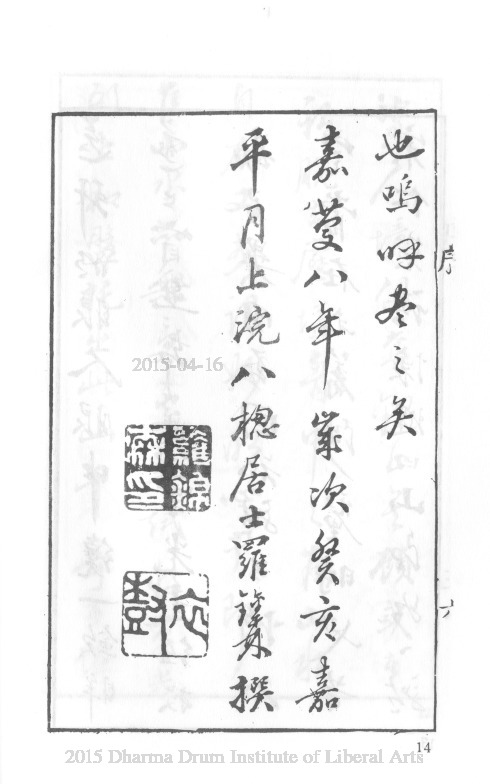 序
也嗚呼盡之矣
嘉慶八年歲次癸亥嘉
平月上浣八居士羅錦森撰
羅錦森印
六
2015-04-16
14
2015 Dharma Drum Institute of Liberal Arts